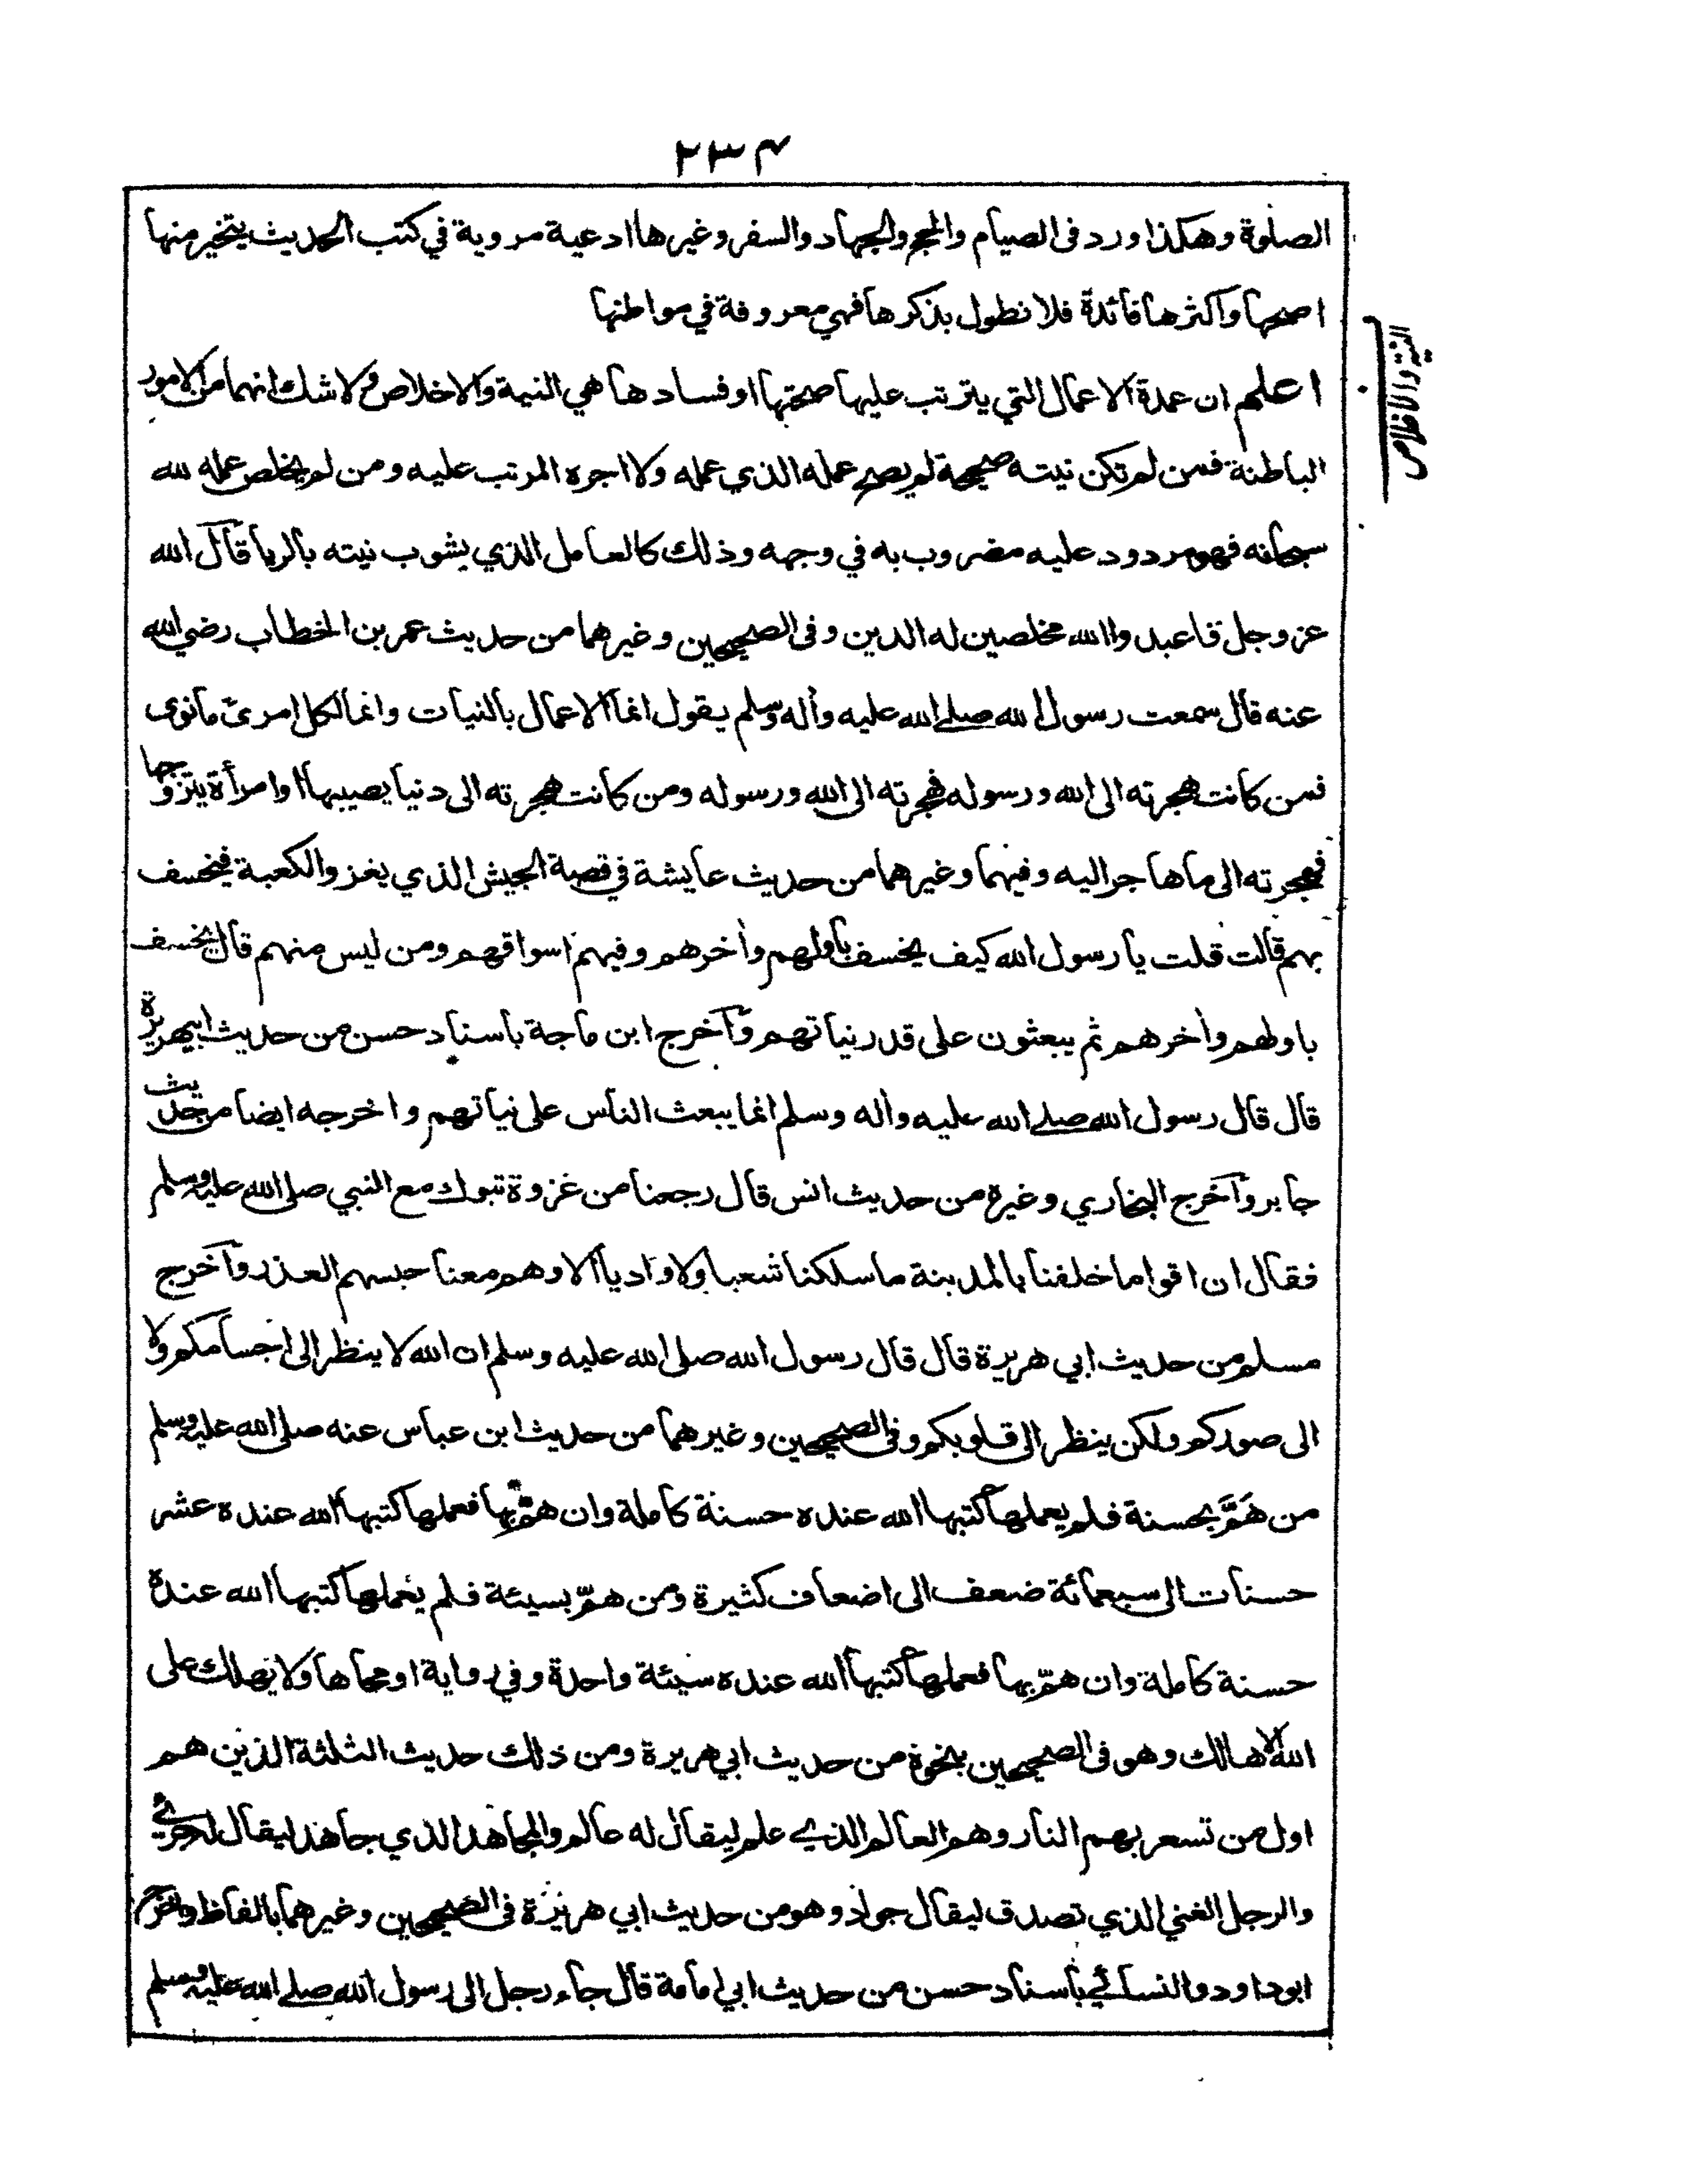 ٢٣٤
الصلوة وهكذا ورد فى الصيام والحج والجهاد والسفر وغيرها ادعية مروية في كتب الحديث يتخير منها
اصحها واكثرها فائدة فلا نطول بذكرها فهي معروفة في مواطنها
النية والاخلاص
اعلم ان عمدة الاعمال التي يترتب عليها صحتها او فسادها هي النية والاخلاص ولا شك انهما من الامور
الباطنة فمن لم تكن نيته صحيحة لم يصح عمله الذي عمله ولا اجره المرتب عليه ومن لم يخلص عمله لله
سبحانه فهو مردود عليه مضروب به في وجهه وذلك كالعامل الذي يشوب نيته بالريا قال الله
عز وجل فاعبدوا الله مخلصين له الدين وفى الصحيحين وغيرهما من حديث عمر بن الخطاب رضي الله
عنه قال سمعت رسول الله صلے الله عليه وأله وسلم يقول انما الاعمال بالنيات وانما لكل امرئ ما نوى
فمن كانت هجرته الى الله ورسوله فهجرته الى الله ورسوله ومن كانت هجرته الى دنيا يصيبها او امرأة يتزوجها
فهجرته الى ما هاجر اليه وفيهما وغيرهما من حديث عايشة في قصة الجيش الذي يغزو الكعبة فيخسف
بهم قالت قلت يا رسول الله كيف يخسف باولهم وأخرهم وفيهم اسواقهم ومن ليس منهم قال يخسف
باولهم وأخرهم ثم يبعثون على قدر نياتهم وآخرج ابن ماجة باسناد حسن من حديث ابيهريرة
قال قال رسول الله صلے الله عليه وأله وسلم انما يبعث الناس على نياتهم واخرجه ايضا من حديث
جابر وآخرج البخاري وغيره من حديث انس قال رجعنا من غزوة تبوك مع النبي صلى الله عليه وسلم
فقال ان اقواما خلفنا بالمدينة ما سلكنا شعبا ولا واديا الا وهم معنا حبسهم العذر وآخرج
مسلم من حديث ابي هريرة قال قال رسول الله صلى الله عليه وسلم ان الله لا ينظر الى اجسامكم ولا
الى صوركم ولكن ينظر الى قلوبكم وفى الصحيحين وغيرهما من حديث ابن عباس عنه صلى الله عليه وسلم
من هَمَّ بحسنة فلم يعملها كتبها الله عنده حسنة كاملة وان همّ بها فعملها كتبها الله عنده عشر
حسنات الى سبعمائة ضعف الى اضعاف كثيرة ومن همّ بسيئة فلم يعملها كتبها الله عنده
حسنة كاملة وان همّ بها فعملها كتبها الله عنده سيئة واحدة وفي رواية او محاها ولا يهلك على
الله الا هالك وهو فى الصحيحين بنحوه من حديث ابي هريرة ومن ذلك حديث الثلثة الذين هم
اول من تسعر بهم النار وهم العالم الذي علم ليقال له عالم والمجاهد الذي جاهد ليقال له جرئ
والرجل الغني الذي تصدق ليقال جواد وهو من حديث ابي هريرة فى الصحيحين وغيرهما بالفاظ واخرج
ابو داود والنسائي باسناد حسن من حديث ابي امامة قال جاء رجل الى رسول الله صلے الله عليه وسلم